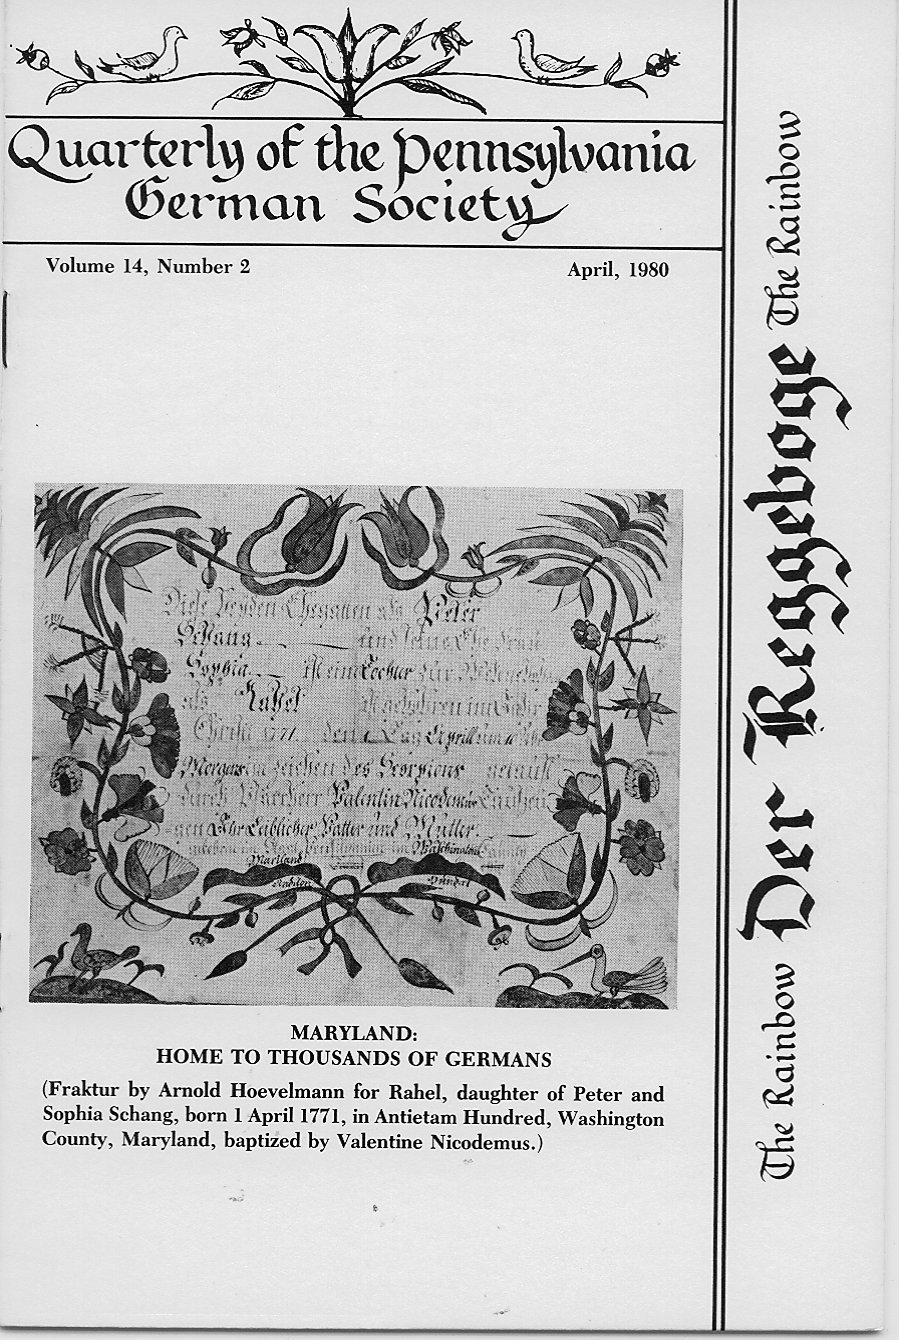 Quarterly of the Pennsylvania
German Society
Volume 14, Number 2
April, 1980
Diese beyden Ehegatten als Peter
Schang und seine Ehe
Sophia ist ein Tochter zur
als Rahel gebohren im
Christi 1771 den 1 Tag Aprill um
Morgens im zeichen des Scorpions
durch Pfarrherr Valentin Nicodemus
Ihr Leiblicher Vatter und Mutter.
Waschington
Maryland
MARYLAND:
HOME TO THOUSANDS OF GERMANS
(Fraktur by Arnold Hoevelmann for Rahel, daughter of Peter and
Sophia Schang, born 1 April 1771, in Antietam Hundred, Washington
County, Maryland, baptized by Valentine Nicodemus.)
The Rainbow Der Reggeboge The Rainbow